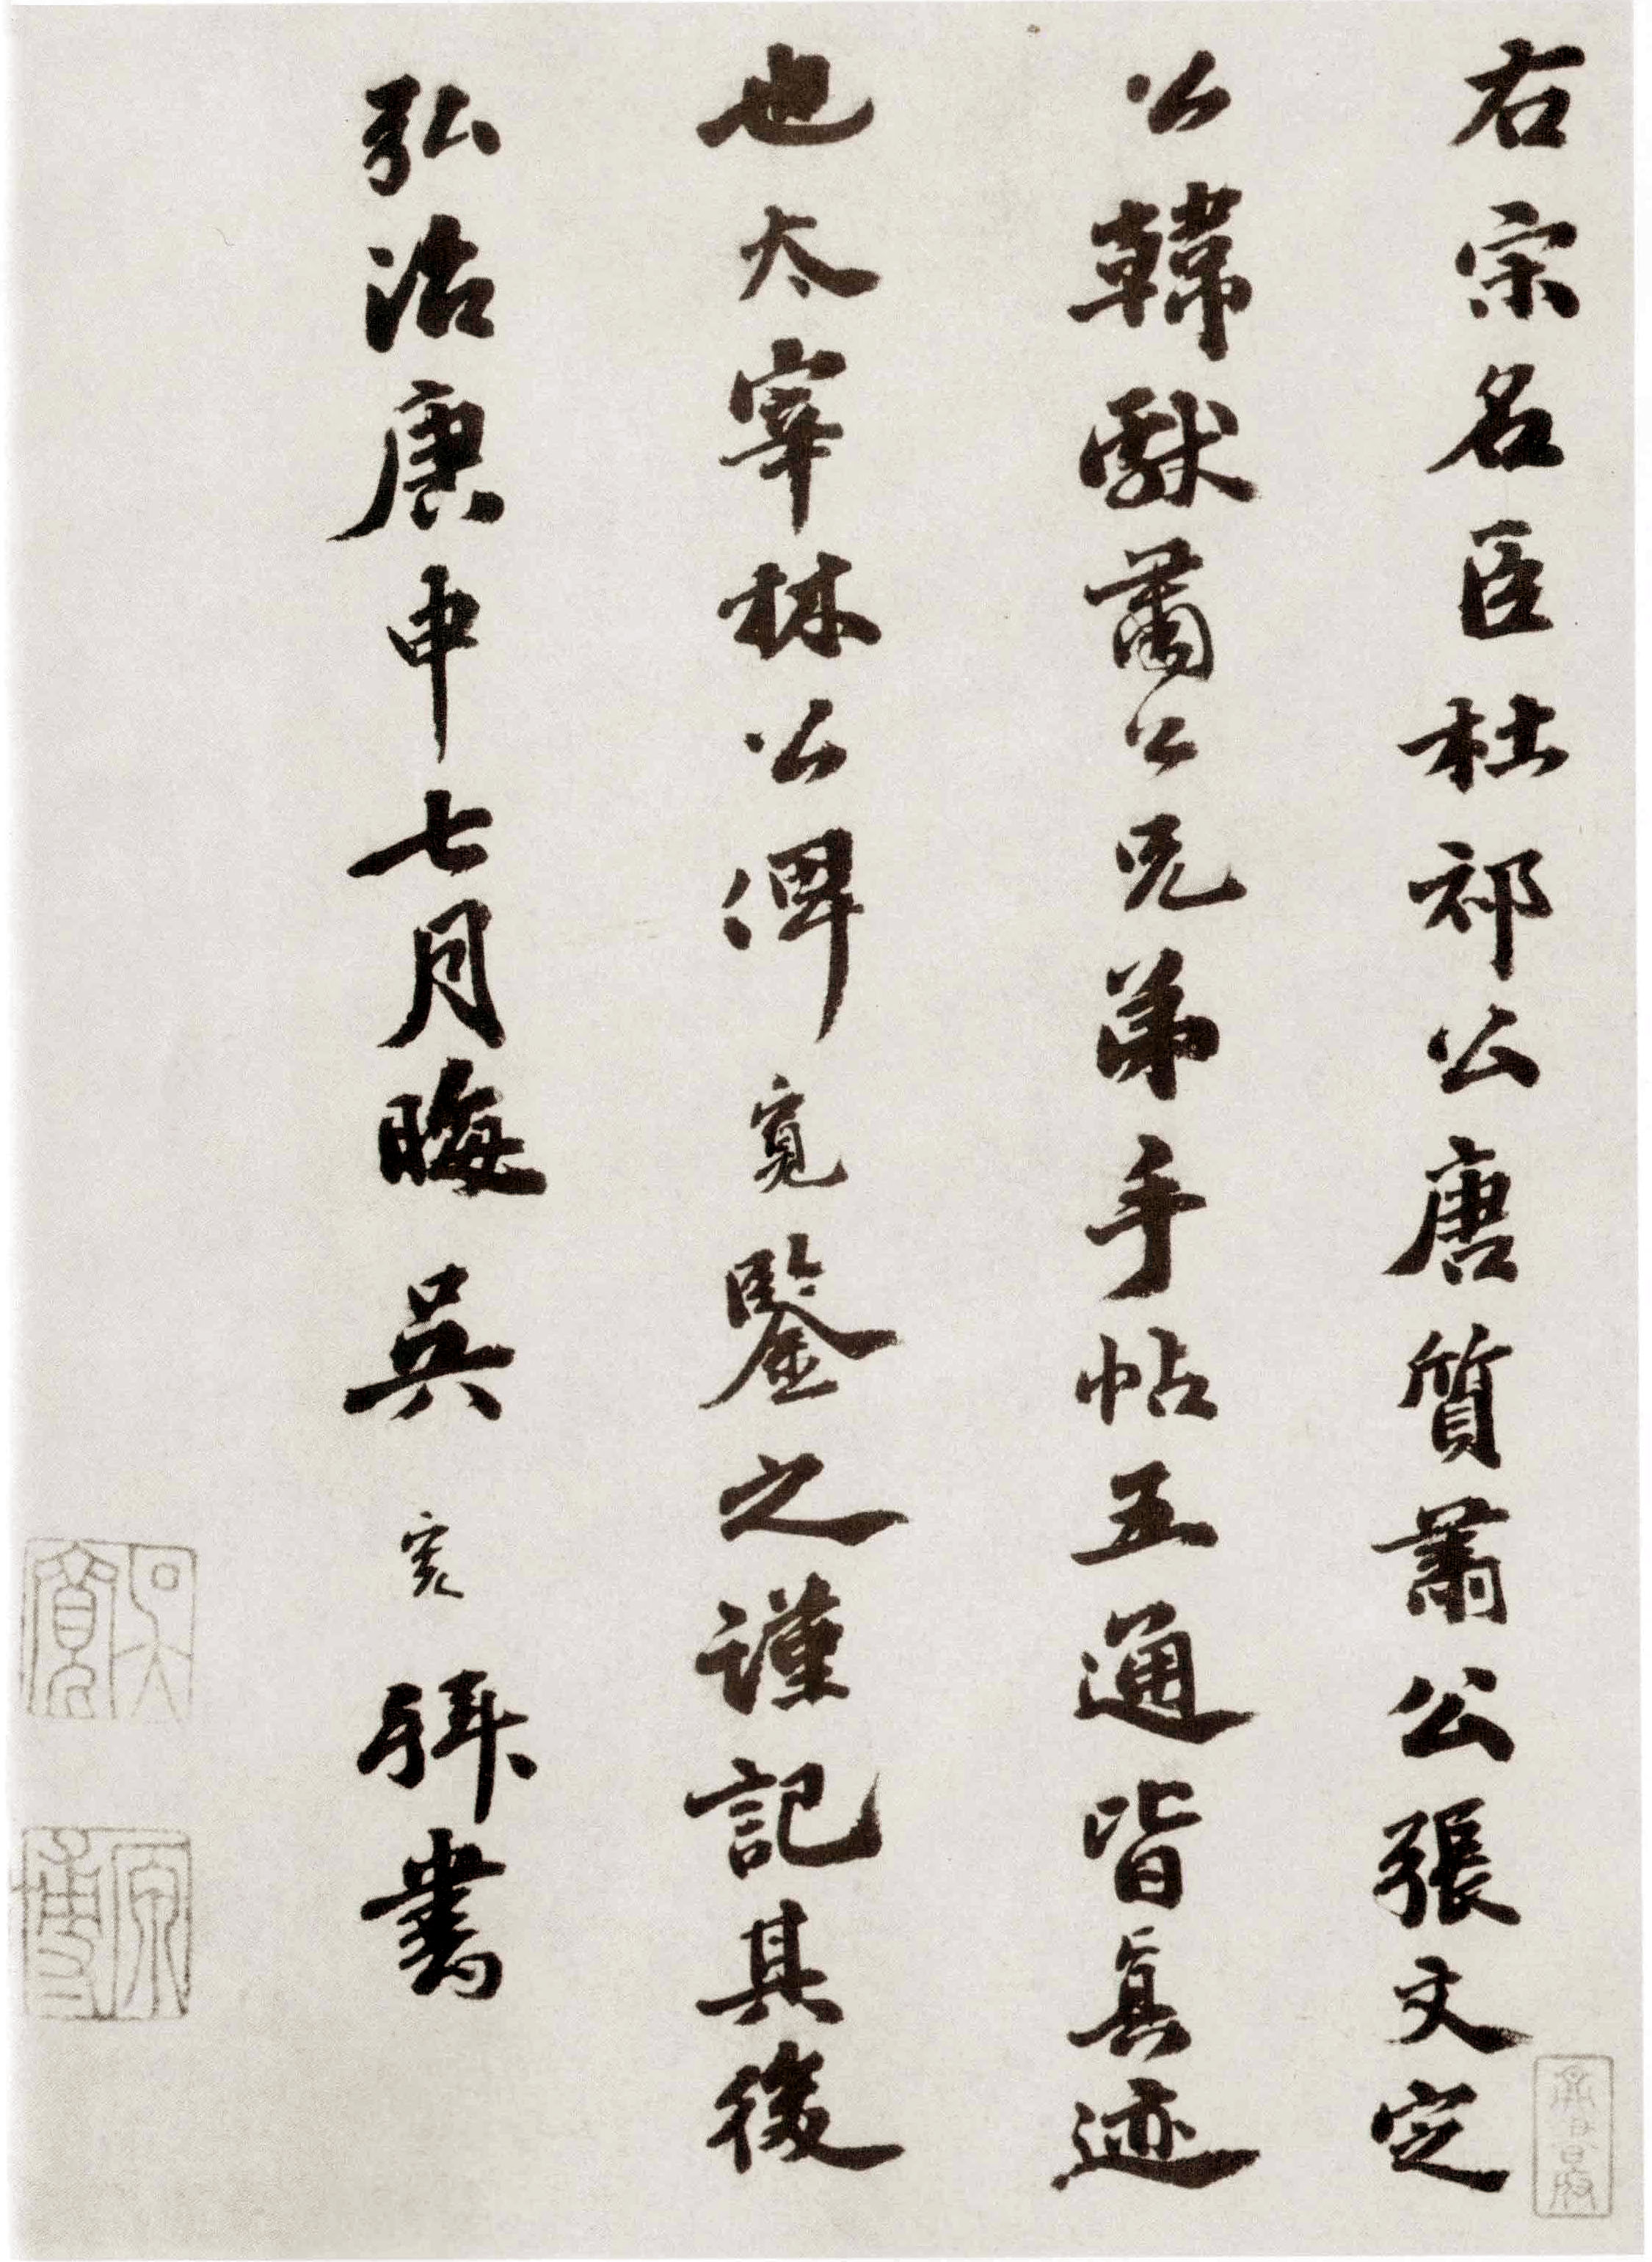 右宋名臣杜祁公唐質蕭公張文定
公韓獻蕭公兄弟手帖五通皆真迹
也太宰林公俾寬鑒之謹記其後
弘治庚申七月晦吳寬拜書
吳寬
原博